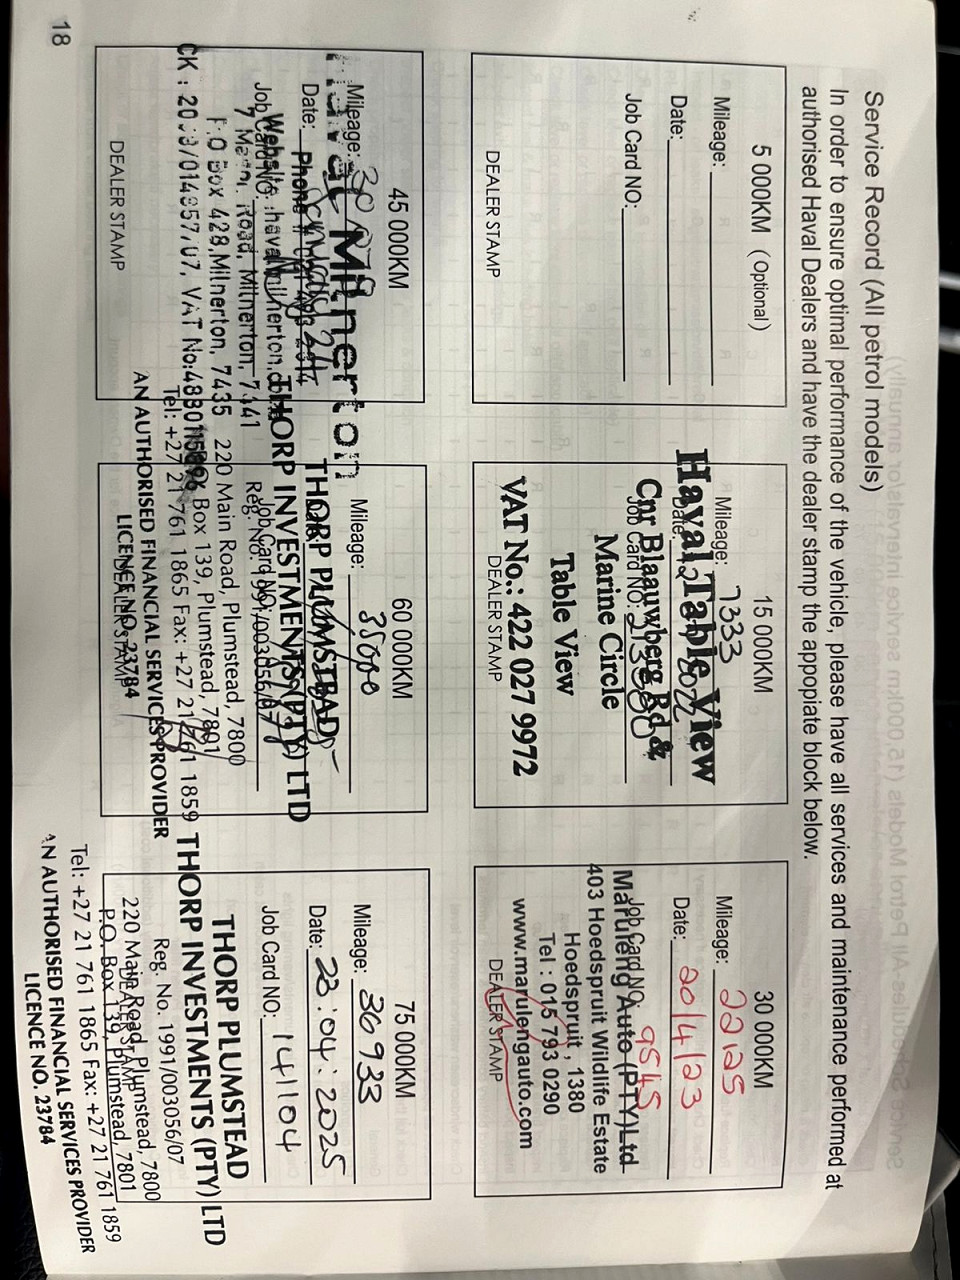 Service Record (All petrol models)
In order to ensure optimal performance of the vehicle, please have all services and maintenance performed at
authorised Haval Dealers and have the dealer stamp the appopiate block below.
5 000KM (Optional)
Mileage:
Date:
Job Card NO:
DEALER STAMP
15 000KM
Mileage: 7333
Date: 2022
Job Card NO:
Haval Table View
Cnr Blaauwberg Rd &
Marine Circle
Table View
VAT No.: 422 027 9972
DEALER STAMP
30 000KM
Mileage: 22125
Date: 20/4/23
Job Card NO: 9545
Maruleng Auto (PTY)Ltd
403 Hoedspruit Wildlife Estate
Hoedspruit, 1380
Tel : 015 793 0290
www.marulengauto.com
DEALER STAMP
45 000KM
Mileage:
Date:
Job Card NO:
Haval Milnerton
Phone
Website: havalmilnerton.co
7 Main Road, Milnerton, 7341
P.O Box 428, Milnerton, 7435
VAT No:
DEALER STAMP
60 000KM
Mileage: 35000
Date:
Job Card NO:
THORP PLUMSTEAD
THORP INVESTMENTS (PTY) LTD
Reg. No. 1991/003056/07
220 Main Road, Plumstead, 7800
Box 139, Plumstead, 7801
Tel: +27 21 761 1865 Fax: +27 21 761 1859
AN AUTHORISED FINANCIAL SERVICES PROVIDER
LICENCE NO. 23784
DEALER STAMP
75 000KM
Mileage: 36933
Date: 23:04:2025
Job Card NO: 141104
THORP PLUMSTEAD
THORP INVESTMENTS (PTY) LTD
Reg. No. 1991/003056/07
220 Main Road, Plumstead, 7800
P.O. Box 139, Plumstead, 7801
Tel: +27 21 761 1865 Fax: +27 21 761 1859
AN AUTHORISED FINANCIAL SERVICES PROVIDER
LICENCE NO. 23784
DEALER STAMP
18